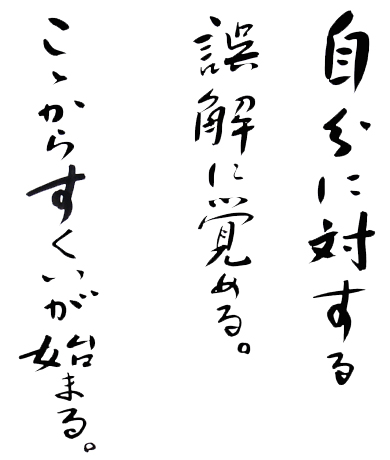 自分に対する
誤解に覚める。
こゝからすくいが始まる。